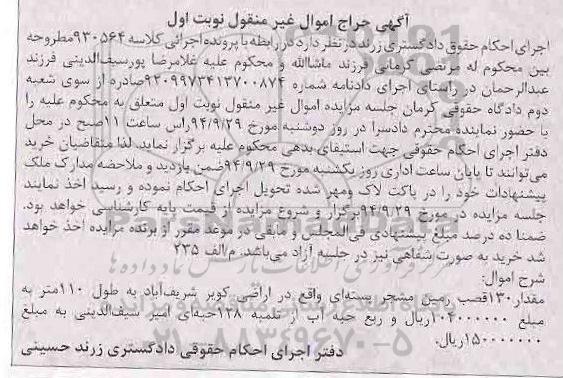 آگهی حراج اموال غیر منقول نوبت اول
اجرای احکام حقوق دادگستری زرند در نظر دارد در رابطه با پرونده اجرائی کلاسه ۹۳۰۵۶۴مطروحه
بین محکوم له مرتضی کرمانی فرزند ماشاالله و محکوم علیه غلامرضا پورسیف‌الدینی فرزند
عبدالرحمان در راستای اجرای دادنامه شماره ۹۲۰۹۹۷۳۴۱۳۷۰۰۸۷۴صادره از سوی شعبه
دوم دادگاه حقوقی کرمان جلسه مزایده اموال غیر منقول نوبت اول متعلق به محکوم علیه را
با حضور نماینده محترم دادسرا در روز دوشنبه مورخ ۹۴/۹/۲۹راس ساعت ۱۱صبح در محل
دفتر اجرای احکام حقوقی جهت استیفای بدهی محکوم علیه برگزار نماید. لذا متقاضیان خرید
می‌توانند تا پایان ساعت اداری روز یکشنبه مورخ ۹۴/۹/۲۹ضمن بازدید و ملاحضه مدارک ملک
پیشنهادات خود را در پاکت لاک ومهر شده تحویل اجرای احکام نموده و رسید اخذ نمایند
جلسه مزایده در مورخ ۹۴/۹/۲۹برگزار و شروع مزایده از قیمت پایه کارشناسی خواهد بود.
ضمنا ده درصد مبلغ پیشنهادی فی‌المجلس و مابقی در موعد مقرر از برنده مزایده اخذ خواهد
شد خرید به صورت شفاهی نیز در جلسه آزاد می‌باشد. م/الف ۲۳۵
شرح اموال:
مقدار۱۳۰قصب زمین مشجر پسته‌ای واقع در اراضی کویر شریف‌آباد به طول ۱۱۰متر به
مبلغ ۱۰۴۰۰۰۰۰۰۰ریال و ربع حبه آب از تلمبه ۱۲۸حبه‌ای امیر سیف‌الدینی به مبلغ
۱۵۰۰۰۰۰۰۰ریال.
دفتر اجرای احکام حقوقی دادگستری زرند حسینی
ParsNamadData
۰۲۱-۸۸۳۴۹۶۷۰-۵